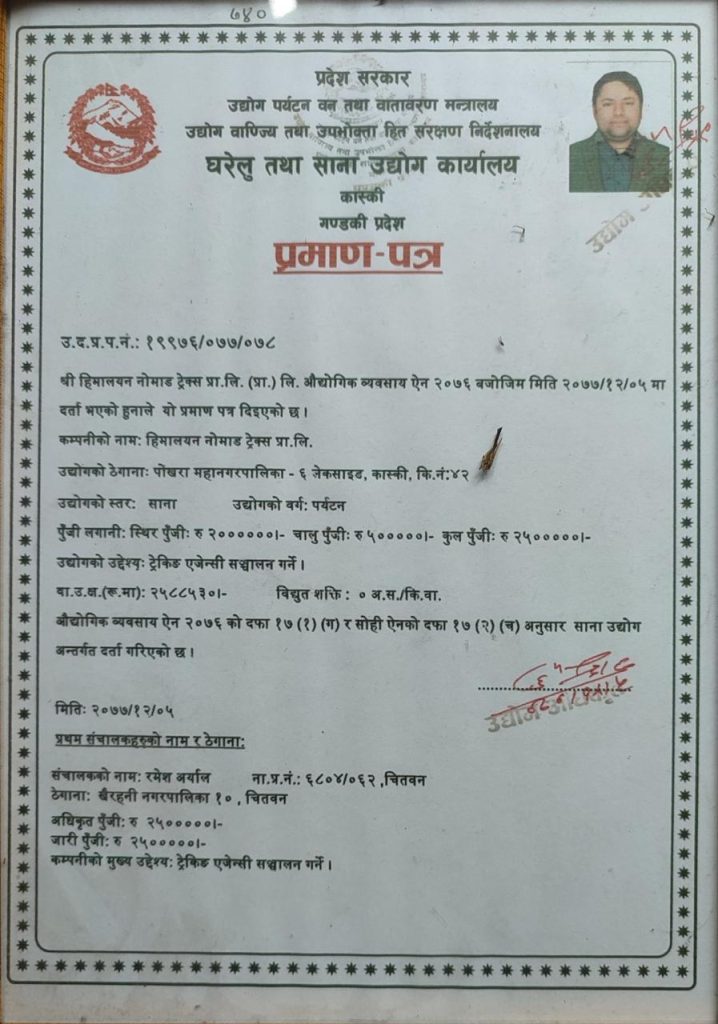 ७४०
प्रदेश सरकार
उद्योग पर्यटन वन तथा वातावरण मन्त्रालय
उद्योग वाणिज्य तथा उपभोक्ता हित संरक्षण निर्देशनालय
घरेलु तथा साना उद्योग कार्यालय
कास्की
गण्डकी प्रदेश
प्रमाण-पत्र
उद्योग
उ.द.प्र.प.नं.: १९९७६/०७७/०७८
श्री हिमालयन नोमाड ट्रेक्स प्रा.लि. (प्रा.) लि. औद्योगिक व्यवसाय ऐन २०७६ बजोजिम मिति २०७७/१२/०५ मा
दर्ता भएको हुनाले यो प्रमाण पत्र दिइएको छ ।
कम्पनीको नाम: हिमालयन नोमाड ट्रेक्स प्रा.लि.
उद्योगको ठेगानाः पोखरा महानगरपालिका - ६ जेकसाइड, कास्की, कि.नं:४२
उद्योगको स्तर: साना उद्योगको वर्ग: पर्यटन
पुँजी लगानी: स्थिर पुँजीः रु २००००००।- चालु पुँजीः रु ५०००००।- कुल पुँजी: रु २५०००००।-
उद्योगको उद्देश्यः ट्रेकिङ एजेन्सी सञ्चालन गर्ने ।
वा.उ.क्ष.(रू.मा): २५८८५३०।- विद्युत शक्ति : ० अ.स./कि.वा.
औद्योगिक व्यवसाय ऐन २०७६ को दफा १७ (१) (ग) र सोही ऐनको दफा १७ (२) (च) अनुसार साना उद्योग
अन्तर्गत दर्ता गरिएको छ ।
उद्योग अधिकृत
मितिः २०७७/१२/०५
प्रथम संचालकहरुको नाम र ठेगाना:
संचालकको नाम: रमेश अर्याल ना.प्र.नं.: ६८०४/०६२ ,चितवन
ठेगाना: खैरहनी नगरपालिका १० , चितवन
अधिकृत पुँजी: रु २५०००००।-
जारी पुँजी: रु २५०००००।-
कम्पनीको मुख्य उद्देश्यः ट्रेकिङ एजेन्सी सञ्चालन गर्ने ।